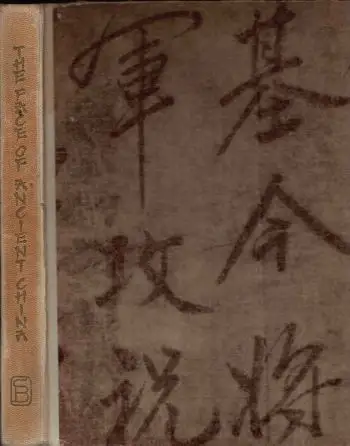 THE FACE OF ANCIENT CHINA
基今将
軍攻祝